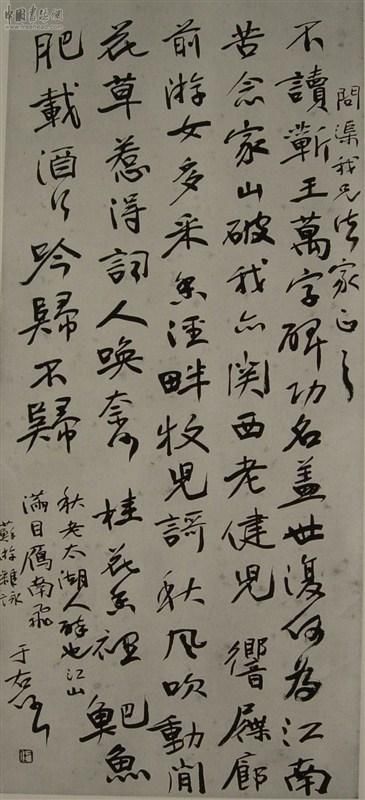 問渠我兄法家正之
不讀蘄王萬字碑功名蓋世復何為江南
苦念家山破我亦関西老健兒 響屧廊
前游女多采香涇畔牧兒謌秋風吹動閒
花草惹得詞人喚奈何 桂花香裡䰾魚
肥載酒行吟歸不歸
秋老太湖人醉也江山
滿目雁南飛
蘇游雜詠
于右任